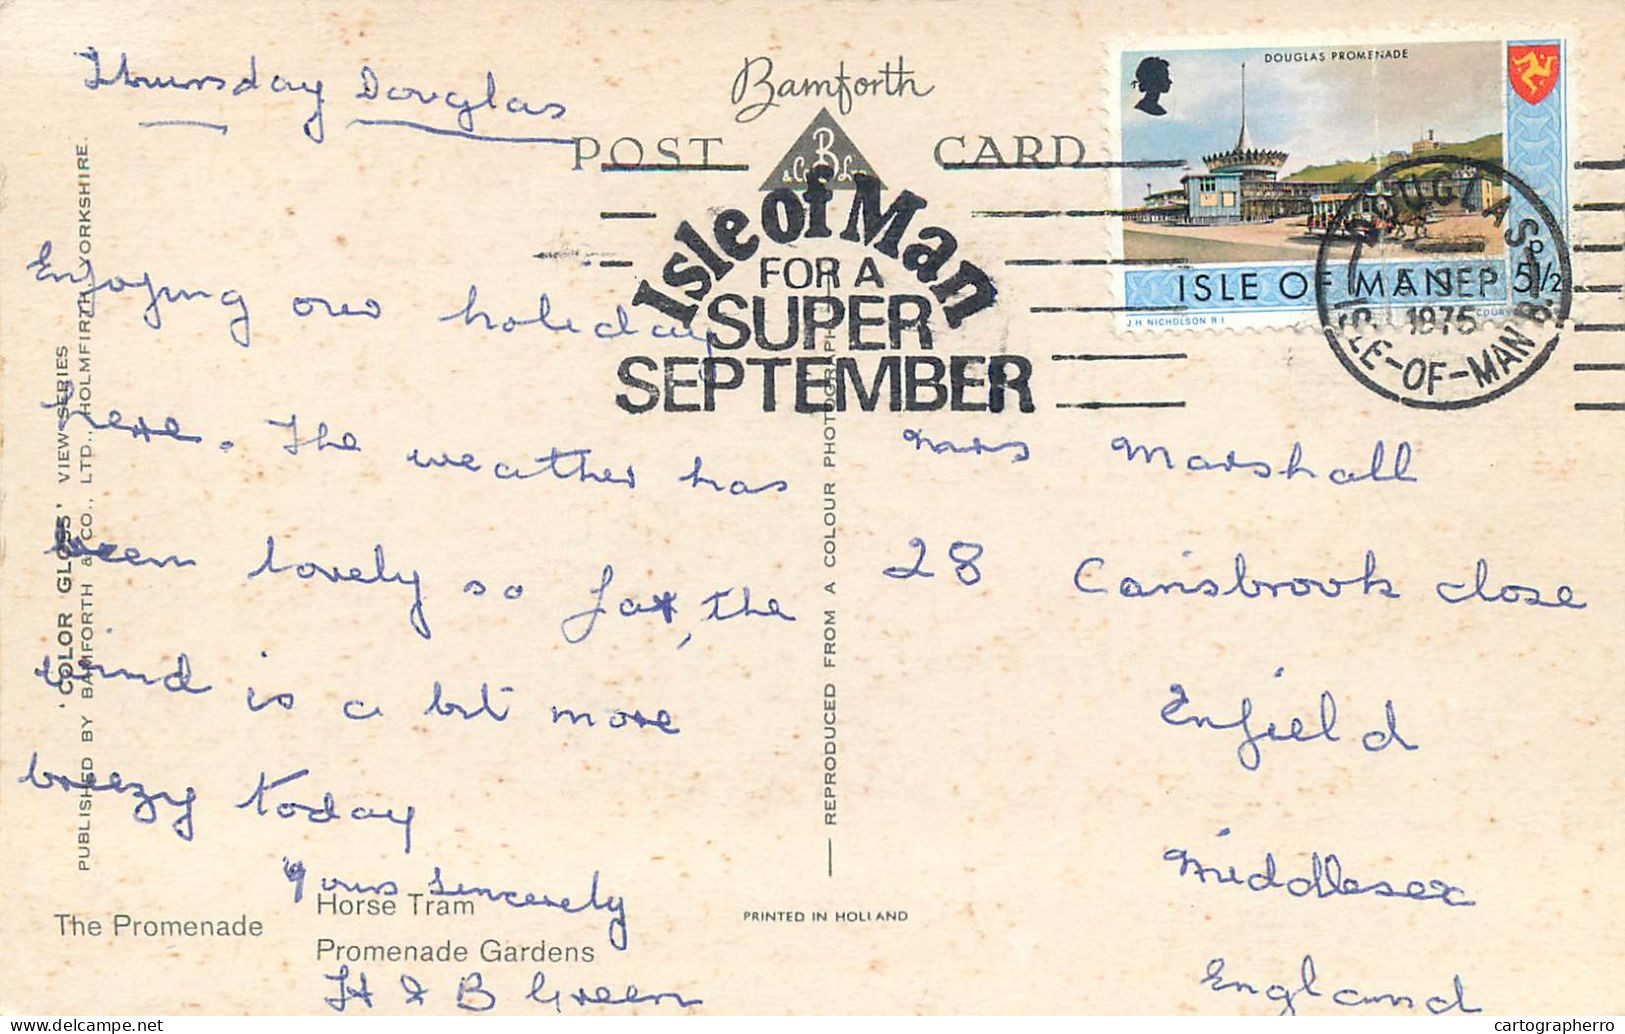 Thursday Douglas
Enjoying our holiday
here. The weather has
been lovely so far, the
wind is a bit more
breezy today
Yours sincerely
H & B Green
Bamforth
POST CARD
B
& Co Ltd
Isle of Man
FOR A
SUPER
SEPTEMBER
DOUGLAS PROMENADE
ISLE OF MAN 5½P
J.H. NICHOLSON R I
DOUGLAS
SEP
1975
ISLE-OF-MAN
Mrs Marshall
28 Carisbrook close
Enfield
Middlesex
England
'COLOR GLOSS' VIEW SERIES
PUBLISHED BY BAMFORTH & CO., LTD., HOLMFIRTH, YORKSHIRE.
REPRODUCED FROM A COLOUR PHOTOGRAPH
The Promenade
Horse Tram
Promenade Gardens
PRINTED IN HOLLAND
cartographerro